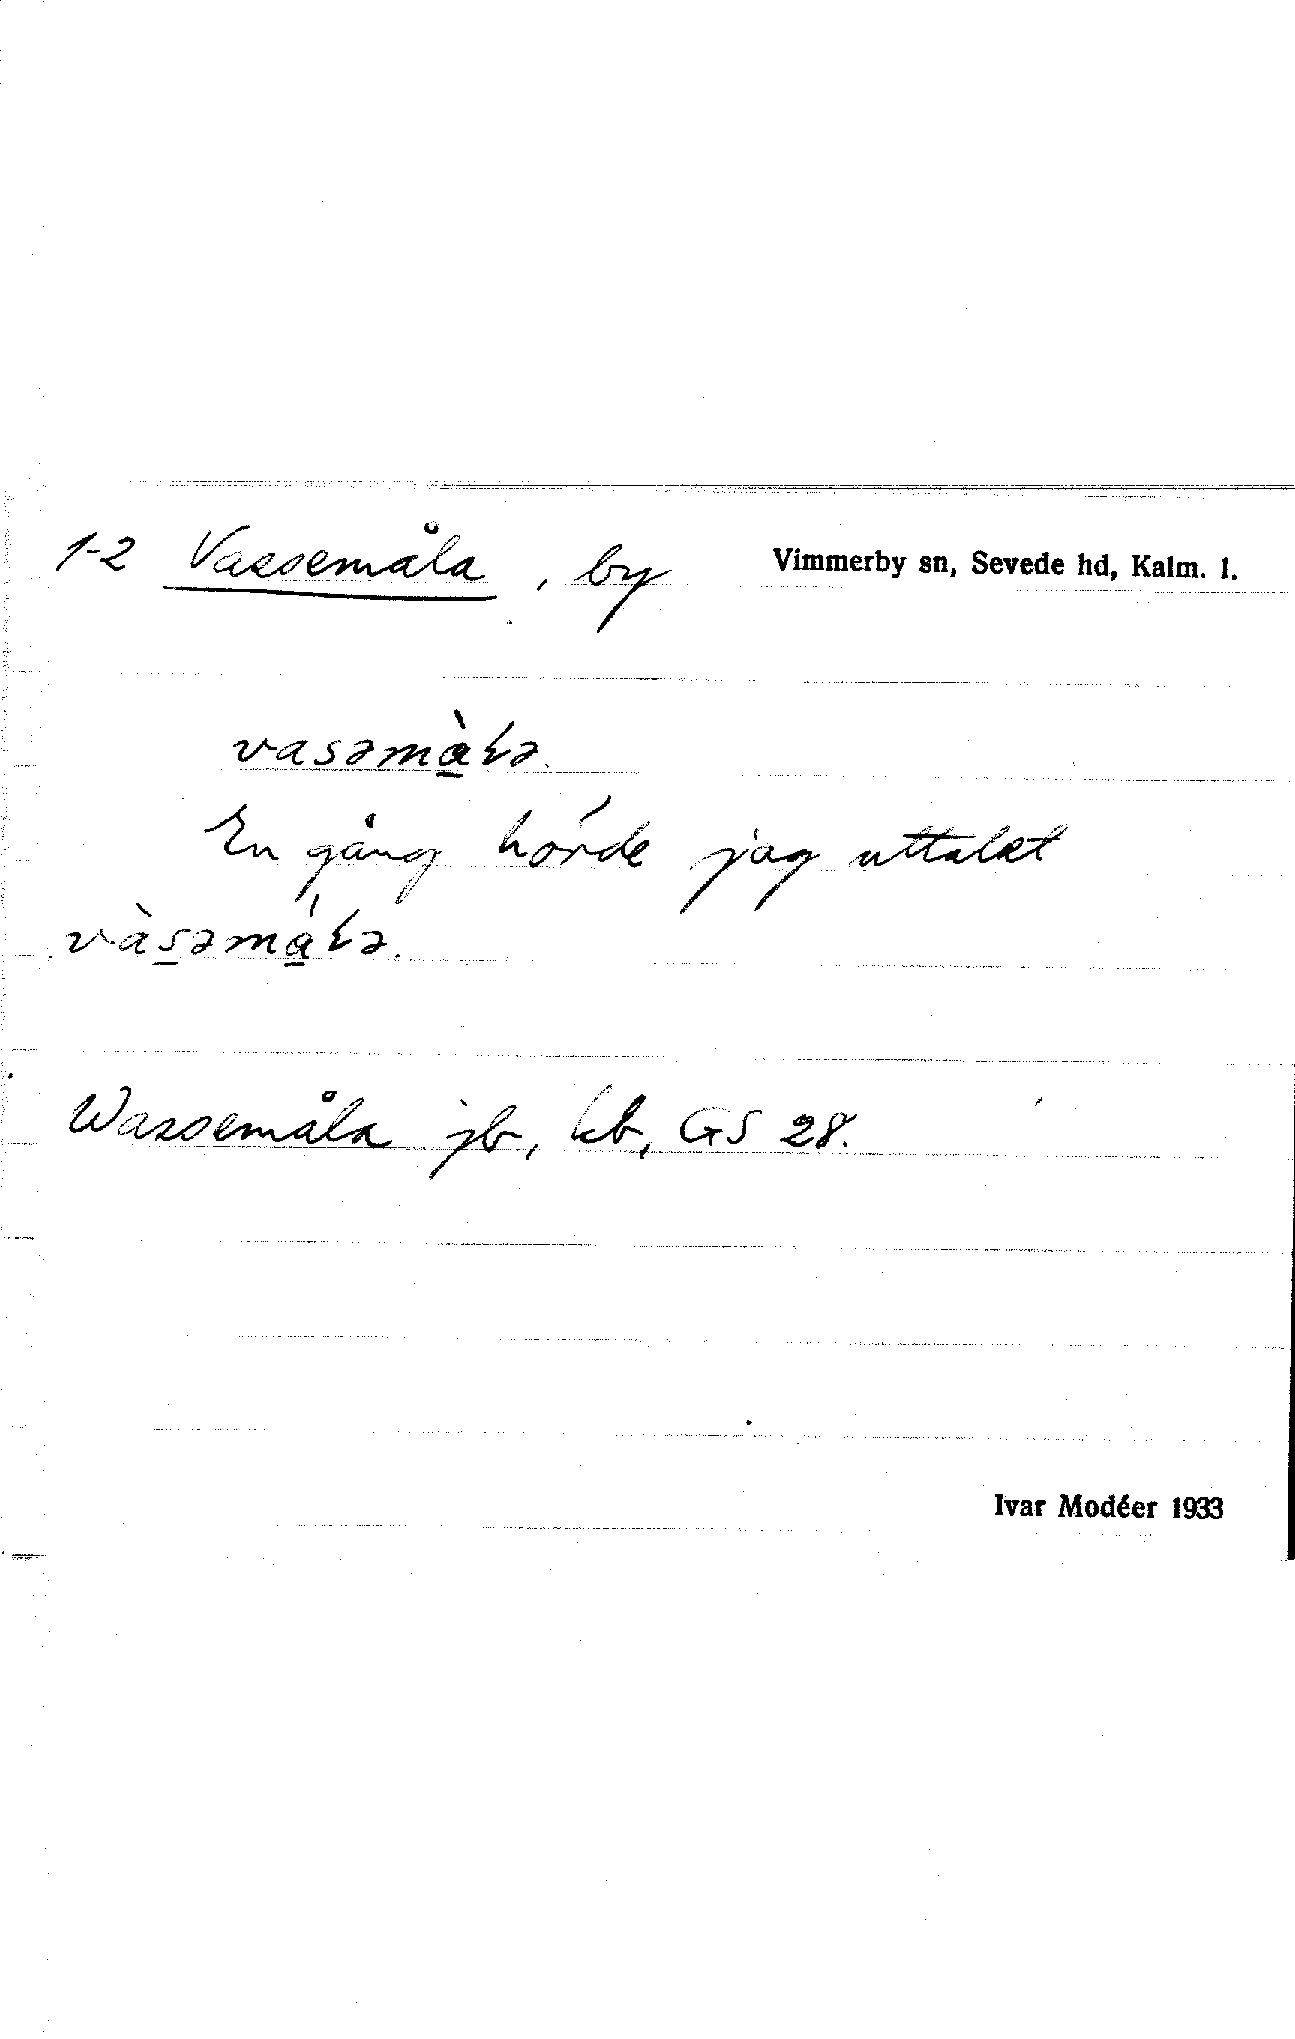 1-2 Vassemåla, by Vimmerby sn, Sevede hd, Kalm. l.
vasəmàɫə.
En gång hörde jag uttalet
vàsəmáɫə.
Wassemåla jb, kb, GS 28.
Ivar Modéer 1933